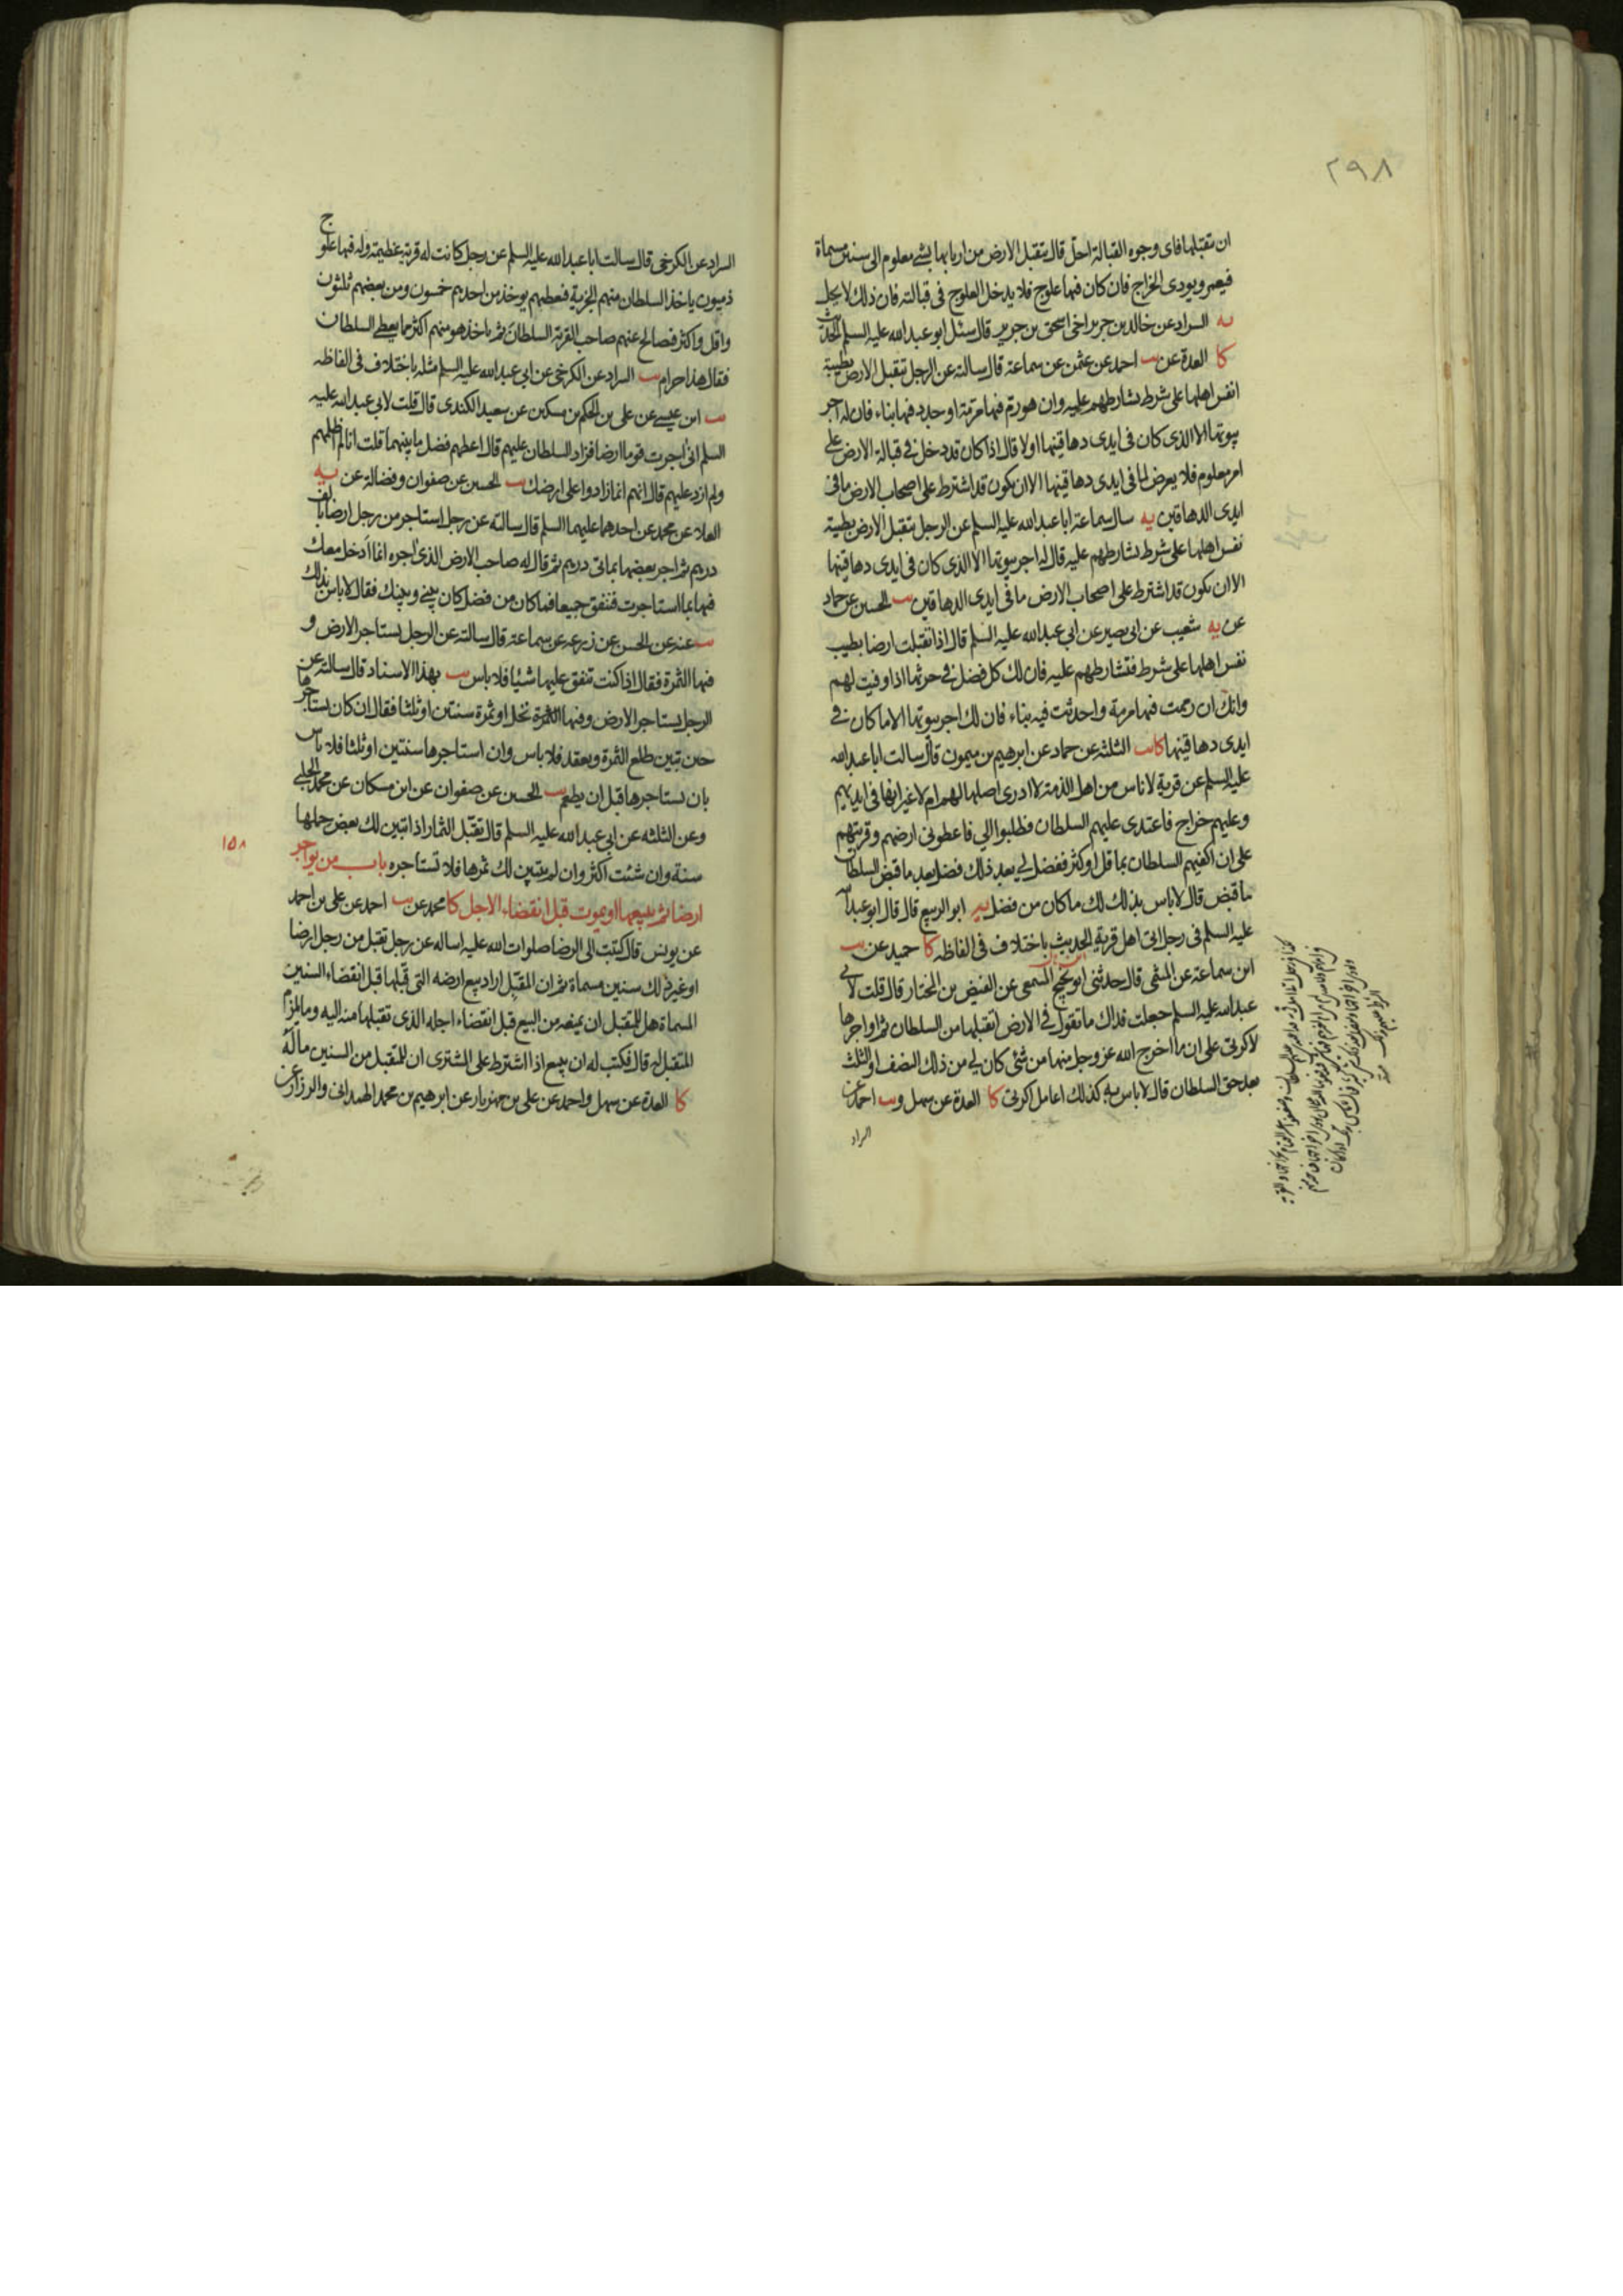 ٢٩٨
ان تقبلها فاى وجوه القبالة احل قال يتقبل الارض من اربابها بشئ معلوم الى سنين مسماة
فيعمر ويودى الخراج فان كان فيها علوج فلا يدخل العلوج فى قبالته فان ذلك لا يحل
يه السراد عن خالد بن جرير اخى اسحق بن جرير قال سئل ابو عبد الله عليه السلم الحديث
كا العدة عن يب احمد عن عثمن عن سماعة قال سالته عن الرجل يتقبل الارض بطيبة
انفس اهلها على شرط يشارطهم عليه وان هو رم فيها مرمة او جدد فيها بناء فان له اجر
بيوتها الا الذى كان فى ايدى دهاقينها اولا قال اذا كان قد دخل فى قبالة الارض على
امر معلوم فلا يعرض لما فى ايدى دهاقينها الا ان يكون قد اشترط على اصحاب الارض ما فى
ايدى الدهاقين يه سال سماعة ابا عبد الله عليه السلم عن الرجل يتقبل الارض بطيبة
نفس اهلها على شرط يشارطهم عليه قال له اجر بيوتها الا الذى كان فى ايدى دهاقينها
الا ان يكون قد اشترط على اصحاب الارض ما فى ايدى الدهاقين يب الحسين عن حماد
عن يه شعيب عن ابى بصير عن ابى عبد الله عليه السلم قال اذا تقبلت ارضا بطيب
نفس اهلها على شرط فتشارطهم عليه فان لك كل فضل فى حرثها اذا وفيت لهم
وانك ان رممت فيها مرمة واحدثت فيه بناء فان لك اجر بيوتها الا ما كان فى
ايدى دهاقينها كا يب الثلثة عن حماد عن ابرهيم بن ميمون قال سالت ابا عبد الله
عليه السلم عن قرية لاناس من اهل الذمة لا ادرى اصلها لهم ام لا غير انها فى ايديهم
وعليهم خراج فاعتدى عليهم السلطان فطلبوا الي فاعطونى ارضهم وقريتهم
على ان اكفيهم السلطان بما قل او كثر ففضل لي بعد ذلك فضل بعد ما قبض السلطان
ما قبض قال لا باس بذلك لك ما كان من فضل يه ابو الربيع قال قال ابو عبد الله
عليه السلم فى رجل اتى اهل قرية الحديث باختلاف فى الفاظه كا حميد عن يب
ابن سماعة عن الميثمى قال حدثنى ابو نجيح المسمعى عن الفيض بن المختار قال قلت لابى
عبد الله عليه السلم جعلت فداك ما تقول فى الارض اتقبلها من السلطان ثم اواجرها
لاكرتى على ان ما اخرج الله عز وجل منها من شئى كان لي من ذلك النصف او الثلث
بعد حق السلطان قال لا باس به كذلك اعامل اكرتى كا العدة عن سهل ويب احمد عن
السراد
السراد عن الكرخى قال سالت ابا عبد الله عليه السلم عن رجل كانت له قرية عظيمة وله فيها علوج
ذميون ياخذ السلطان منهم الجزية فيعطيهم يوخذ من احدهم خمسون ومن بعضهم ثلثون
واقل واكثر فصالح عنهم صاحب القرية السلطان ثم ياخذ هو منهم اكثر مما يعطي السلطان
فقال هذا حرام يب السراد عن الكرخى عن ابى عبد الله عليه السلم مثله باختلاف فى الفاظه
يب ابن عيسى عن على بن الحكم بن مسكين عن سعيد الكندى قال قلت لابى عبد الله عليه
السلم انى اجرت قوما ارضا فزاد السلطان عليهم قال اعطهم فضل ما بينهما قلت انا لم اظلمهم
ولم ازد عليهم قال انهم انما زادوا على ارضك يب الحسين عن صفوان وفضالة عن يه
العلا عن محمد عن احدهما عليهما السلم قال سالته عن رجل استاجر من رجل ارضا بالف
درهم ثم اجر بعضها بماتى درهم ثم قال له صاحب الارض الذى اجره انما ادخل معك
فيها بما استاجرت فننفق جميعا فما كان من فضل كان بينى وبينك فقال لا باس بذلك
يب عنه عن الحسن عن زرعه عن سماعة قال سالته عن الرجل يستاجر الارض و
فيها الثمرة فقال اذا كنت تنفق عليها شيئا فلا باس يب بهذا الاسناد قال سالته عن
الرجل يستاجر الارض وفيها الثمرة نخل او ثمرة سنتين او ثلثا فقال ان كان يستاجرها
حين تبين طلع الثمرة ويعقد فلا باس وان استاجرها سنتين او ثلثا فلا باس
بان يستاجرها قبل ان يطعم يب الحسين عن صفوان عن ابن مسكان عن محمد الحلبى
وعن الثلثه عن ابى عبد الله عليه السلم قال تقبّل الثمار اذا تبين لك بعض حملها
سنة وان شئت اكثر وان لم يتبين لك ثمرها فلا تستاجره باب من يواجر
١٥٨
ارضا ثم يبيعها او يموت قبل انقضاء الاجل كا محمد عن يب احمد عن على بن احمد
عن يونس قال كتبت الى الرضا صلوات الله عليه اساله عن رجل تقبل من رجل ارضا
او غير ذلك سنين مسماة ثم ان المقبّل اراد بيع ارضه التى قبّلها قبل انقضاء السنين
المسماة هل للمتقبل ان يمنعه من البيع قبل انقضاء اجله الذى تقبلها منه اليه وما يلزم
المتقبل له قال فكتب له ان يبيع اذا اشترط على المشترى ان للمتقبل من السنين ما له
كا العدة عن سهل واحمد عن على بن مهزيار عن ابرهيم بن محمد الهمدانى والرزاز عن